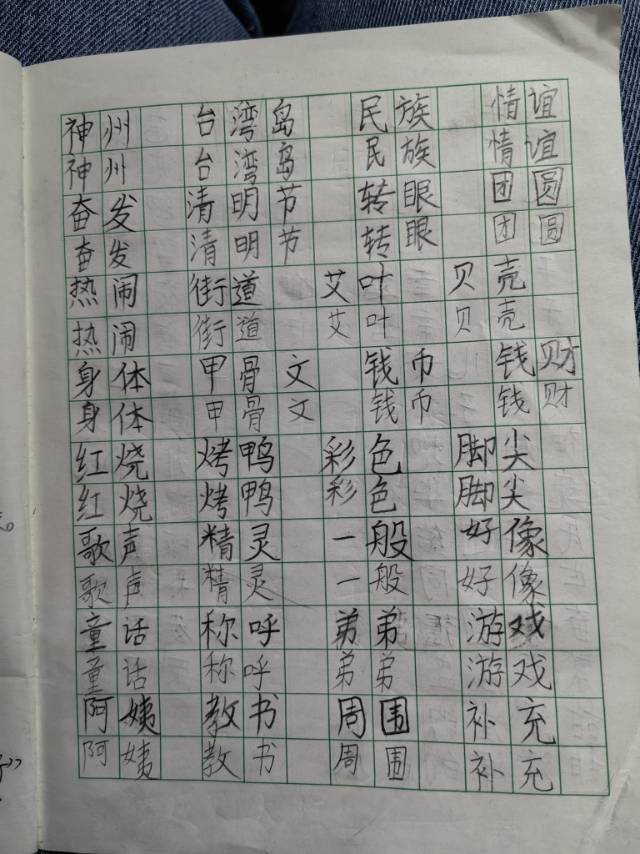 神州 台湾岛 民族 情谊
神州 台湾岛 民族 情谊
奋发 清明节 转眼 团圆
奋发 清明节 转眼 团圆
热闹 街道 艾叶 贝壳
热闹 街道 艾叶 贝壳
身体 甲骨文 钱币 钱财
身体 甲骨文 钱币 钱财
红烧 烤鸭 彩色 脚尖
红烧 烤鸭 彩色 脚尖
歌声 精灵 一般 好像
歌声 精灵 一般 好像
童话 称呼 弟弟 游戏
童话 称呼 弟弟 游戏
阿姨 教书 周围 补充
阿姨 教书 周围 补充